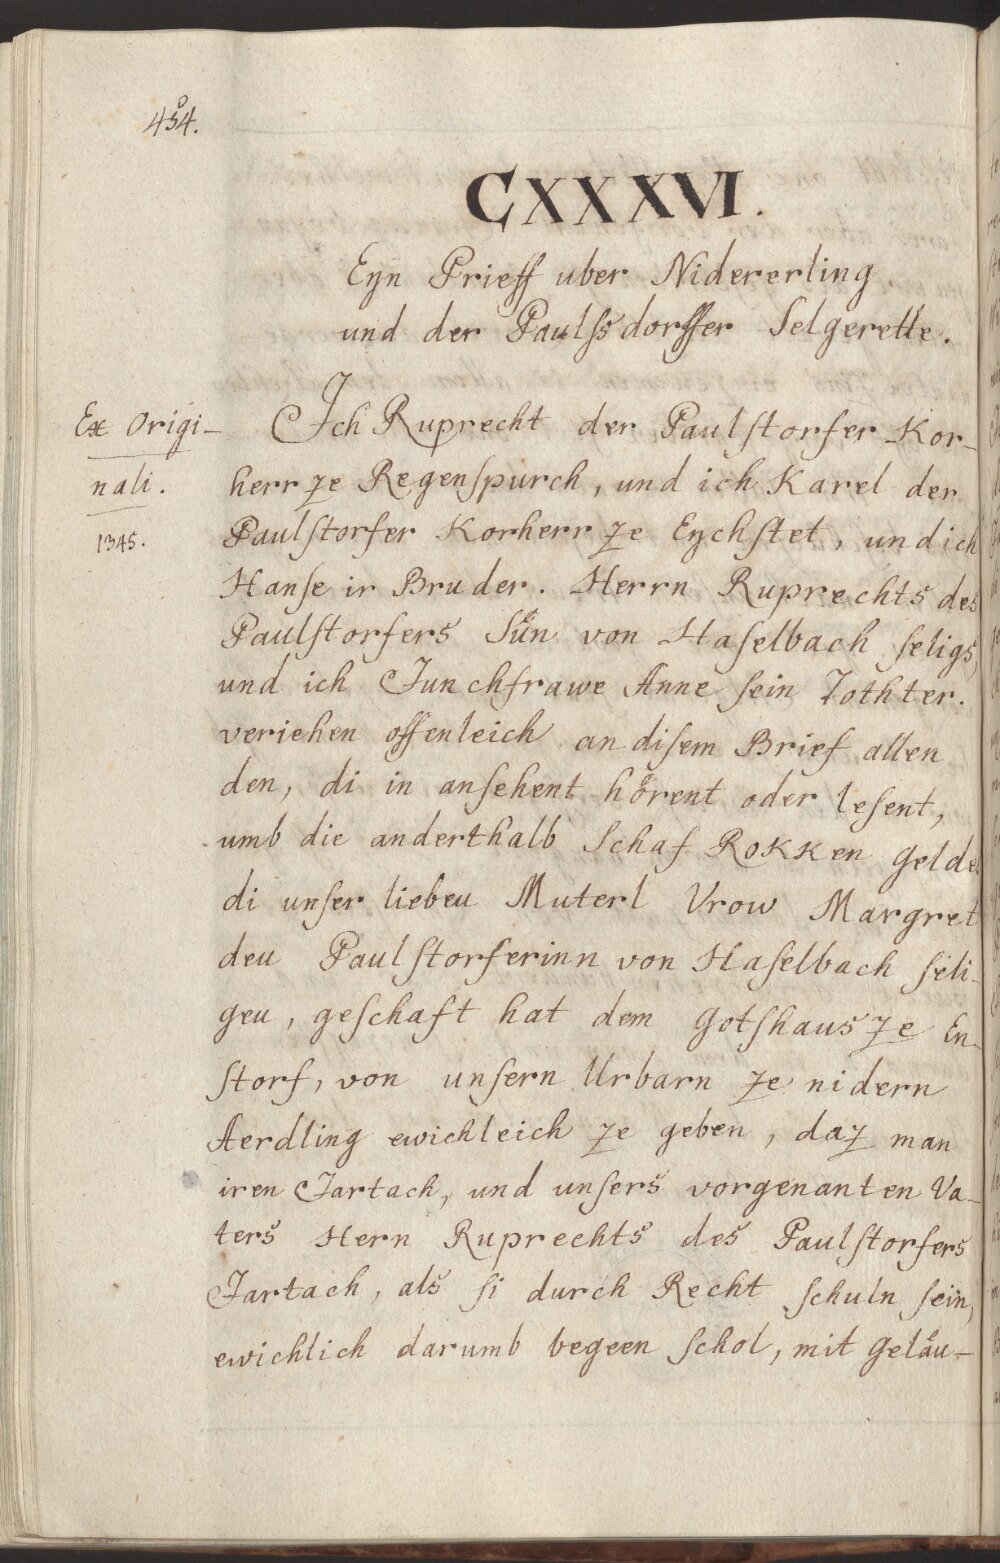 454.
CXXXXVI.
Eyn Prieff uber Nidererling
und der Paulſsdorffer Selgerette.
Ex Origi-
nali.
1345.
Ich Ruprecht der Paulſtorfer Kor-
herr ze Regenſpurch, und ich Karel der
Paulſtorfer Korherr ze Eychſtet, und ich
Hanſe ir Bruder. Herrn Ruprechts des
Paulſtorfers Sün von Haſelbach ſeligs,
und ich Junchfrawe Anne ſein Tothter.
veriehen offenleich an diſem Brief allen
den, di in anſehent hörent oder leſent,
umb die anderthalb Schaf Rokken gelde
di unſer liebeu Muterl Vrow Margret
deu Paulſtorferinn von Haſelbach ſeli-
geu, geſchaft hat dem Gotſhaus ze En-
ſtorf, von unſern Urbarn ze nidern
Aerdling ewichleich ze geben, daz man
iren Jartach, und unſers vorgenanten Va-
ters Hern Ruprechts des Paulſtorfers
Jartach, als ſi durch Recht ſchuln ſein,
ewichlich darumb begeen ſchol, mit geläu-